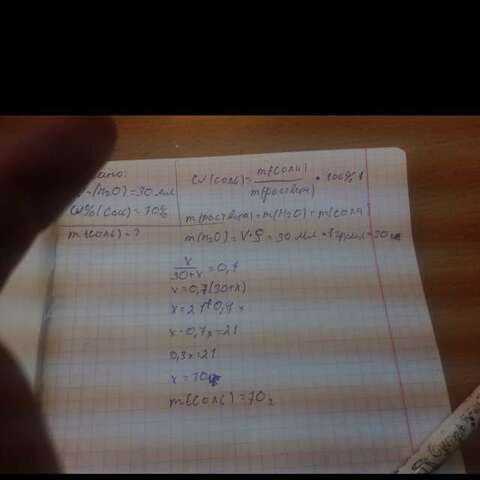 ано:
V(H₂O) = 30 мл
W%(Соль) = 70%
m(соль) = ?
W(соль) = m(соли) / m(раствора) • 100%
m(раствора) = m(H₂O) + m(соли)
m(H₂O) = V•ρ = 30 мл • 1 г/мл = 30 г
x / 30+x = 0,7
x = 0,7(30+x)
x = 21+0,7x
x - 0,7x = 21
0,3x = 21
x = 70
m(соль) = 70г